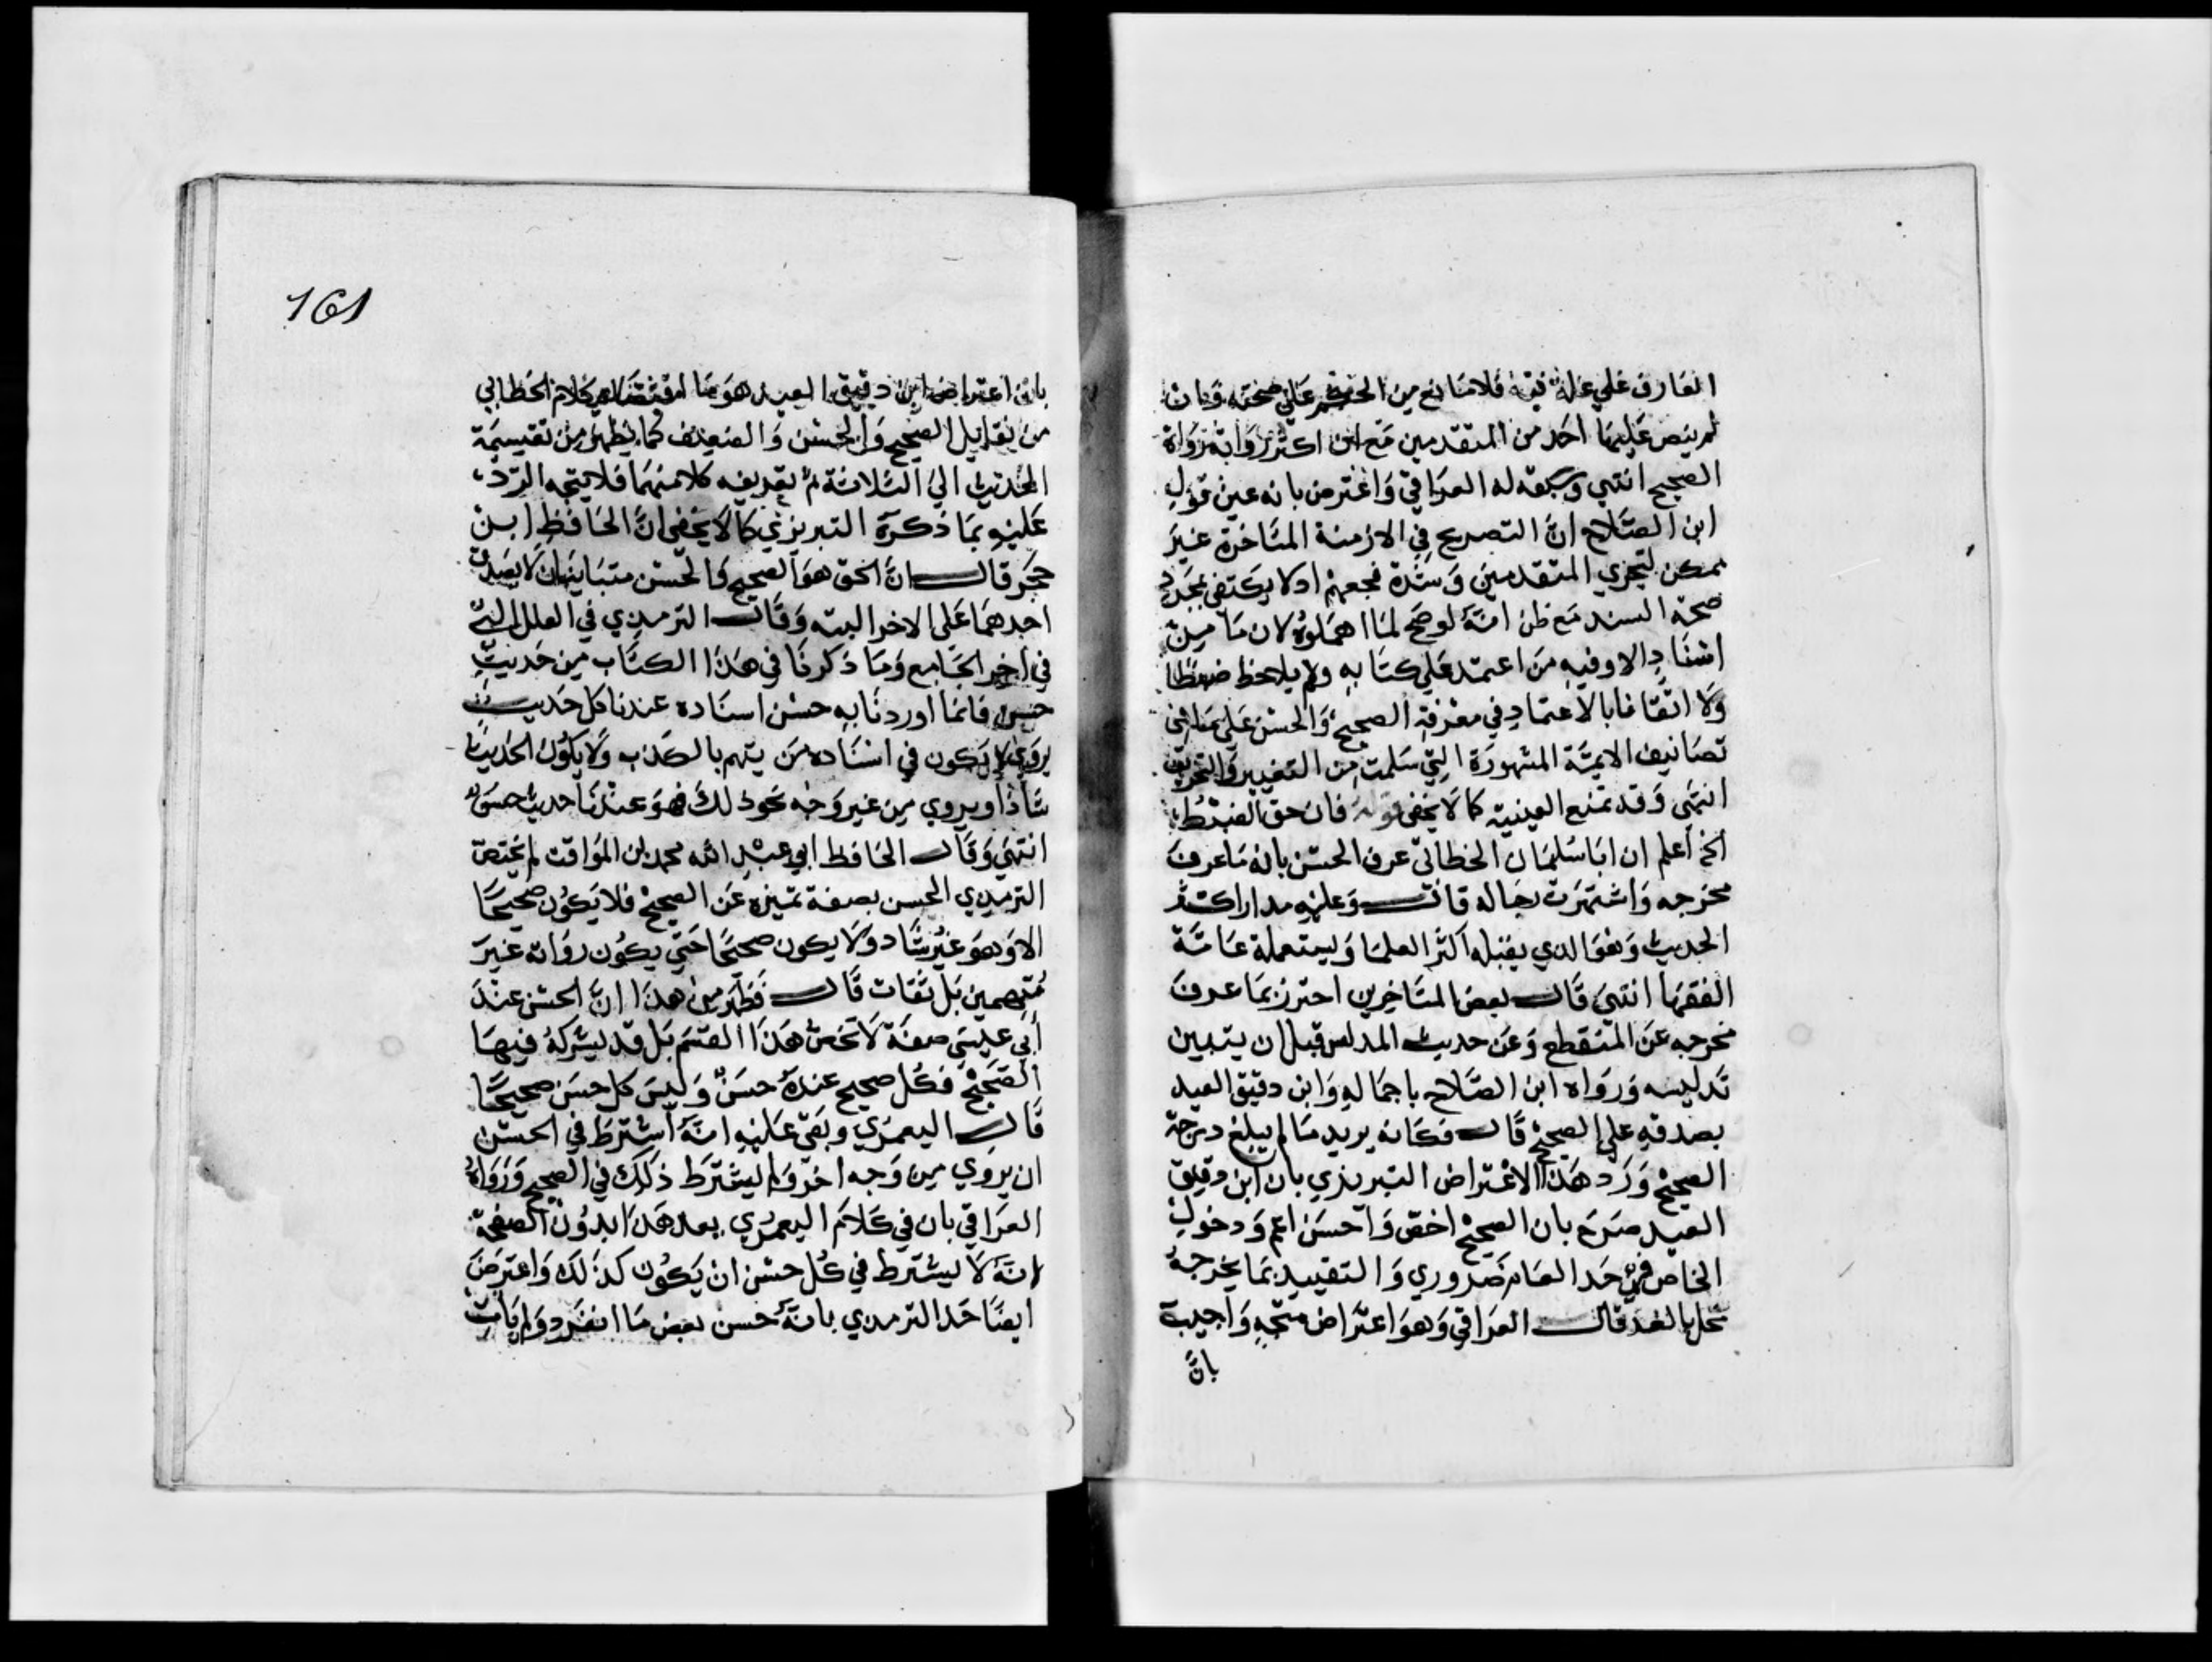 العارف علي علة فيه فلا مانع من الحكم علي صحته وان
لم ينص عليها احد من المتقدمين مع ان اكثر رواته رواة
الصحيح انتهي وسبقه له العراقي واعترض بانه عين قول
ابن الصلاح ان التصريح في الازمنة المتاخرة غير
ممكن لتحري المتقدمين وشدة فحصهم اد لا يكتفي بمجرد
صحة السند مع ظن انه لو صح لما اهملوه لان ما من
اسناد الا وفيه من اعتمد علي كتابه ولم يلاحظ ضبطا
ولا اتقانا بالاعتماد في معرفة الصحيح والحسن علي ما في
تصانيف الايمة المشهورة التي سلمت من التغيير والتحريف
انتهى وقد تمنع العينية كما لا يخفى قوله فان خف الضبط
الخ أعلم ان ابا سليمان الخطابي عرف الحسن بانه ما عرف
مخرجه واشتهرت رجاله قال وعليه مدار اكثر
الحديث وهو الدي يقبله اكثر العلما ويستعمله عامة
الفقها انتهي قال بعض المتاخرين احترز بما عرف
مخرجه عن المنقطع وعن حديث المدلس قبل ان يتبين
تدليسه ورواه ابن الصلاح باجماله وابن دقيق العيد
بصدقه علي الصحيح قال فكانه يريد ما لم يبلغ درجة
الصحيح ورد هذا الاعتراض التبريزي بان ابن دقيق
العيد صرح بان الصحيح اخص والحسن اعم ودخول
الخاص في حد العام ضروري والتقييد بما يخرجه
مخل بالحد قال العراقي وهو اعتراض متجه واجيب
بانّ
161
بان اعتراض ابن دقيق العيد هو ما اقتضاه كلام الخطابي
من تقابل الصحيح والحسن والضعيف كما يظهر من تقسيمة
الحديث الي الثلاثة ثم تعريفه كلا منهما فلا يتجه الرد
عليه بما ذكره التبريزي كما لا يخفى ان الحافظ ابن
حجر قال ان الحق هو الصحيح والحسن متباينان لا يصدق
احدهما على الاخر البته وقال الترمدي في العلل التي
في اخر الجامع وما ذكرنا في هذا الكتاب من حديث
حسن فانما اوردنا به حسن اسناده عندنا كل حديث
يروي لا يكون في اسناده من يتهم بالكذب ولا يكون الحديث
شاذا ويروي من غير وجه نحو ذلك فهو عندنا حديث حسن
انتهي وقال الحافظ ابي عبد الله محمد ابن المواق لم يختص
الترمدي الحسن بصفة تميزه عن الصحيح فلا يكون صحيحا
الا وهو غير شاد ولا يكون صحيحا حتي يكون رواته غير
متهمين بل ثقات قال فظهر من هذا ان الحسن عند
أبي عيسي صفة لا تخص هذا القسم بل قد يشركه فيها
الصحيح فكل صحيح عنده حسن وليس كل حسن صحيحا
قال اليعمري وبقي عليه انه اشترط في الحسن
ان يروي من وجه اخر ولم يشترط ذلك في الصحيح ورواه
العراقي بان في كلام اليعمري بعد هذا بدون الصفحة
انه لا يشترط في كل حسن ان يكون كذلك واعترض
ايضا حد الترمدي بانه حسن بعض ما انفرد ولم يات